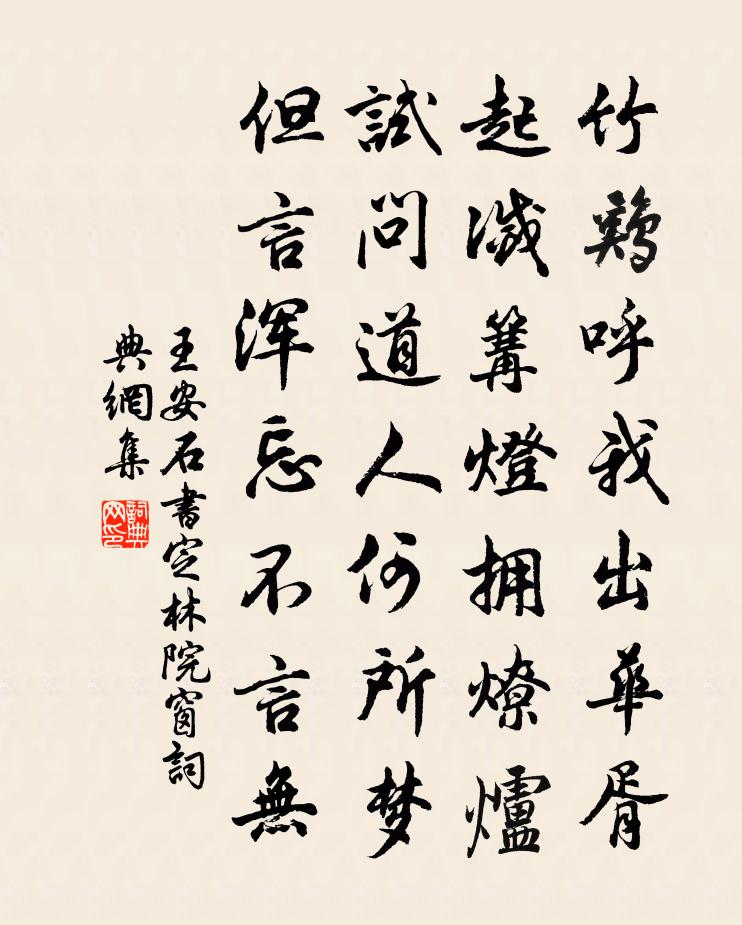 竹鷄呼我出華胥
起滅篝燈拥燎爐
試問道人何所梦
但言浑忘不言無
王安石書定林院窗詞
典網集
詞典网印